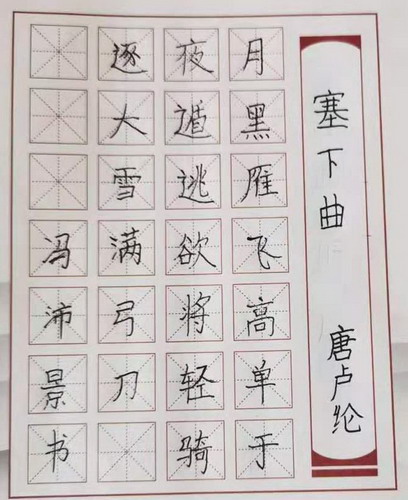 塞下曲 唐卢纶
月黑雁飞高单于
夜遁逃欲将轻骑
逐大雪满弓刀
冯沛景书